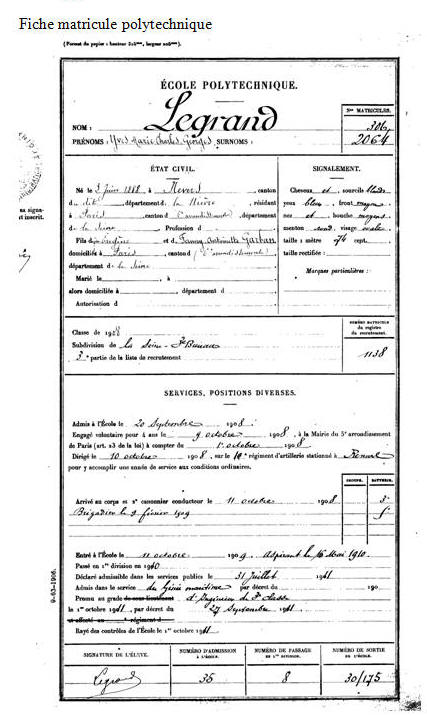 Fiche matricule polytechnique
(Format du papier : hauteur
ÉCOLE POLYTECHNIQUE.
Nos MATRICULES.
Legrand
NOM :
306
2064
PRÉNOMS : Yves Marie Charles Georges SURNOMS :
ÉTAT CIVIL.
Né le 3 Juin 1888, à Nevers, canton
d dit, département de la Nièvre, résidant
à Paris, canton d, département
de la Seine Profession d
Fils d et d Fanny Antoinette Garban
domiciliés à Paris, canton d
département de la Seine
Marié le, à
alors domiciliée à, département d
Autorisation d
SIGNALEMENT.
Cheveux et sourcils
yeux bleus, front moyen
nez et, bouche moyens
menton rond, visage ovale
taille : 1 mètre 74 cent.
taille rectifiée :
Marques particulières :
sa signa-
et inscrit.
Classe de 1908
Subdivision de la Seine
3e partie de la liste de recrutement
NUMÉRO MATRICULE
du registre
du recrutement.
1138
SERVICES, POSITIONS DIVERSES.
Admis à l'École le 20 Septembre 1908.
Engagé volontaire pour 4 ans le 9 octobre 1908, à la Mairie du 5e arrondissement
de Paris (art. 23 de la loi) à compter du 1er octobre 1908.
Dirigé le 10 octobre 1908, sur le régiment d'artillerie stationné à
pour y accomplir une année de service aux conditions ordinaires.
GROUPE. BATTERIE.
Arrivé au corps et 2e canonnier conducteur le 11 octobre 1908 3e
Brigadier le 9 février 1909
Entré à l'École le 11 octobre 1909. Aspirant le 16 Mai 1910.
Passé en 1re division en 1910
Déclaré admissible dans les services publics le 31 Juillet 1911
Admis dans le service du Génie maritime par décret du 190
Promu au grade de sous-lieutenant d'Ingénieur de 3e classe
le 1er octobre 1911, par décret du 27 Septembre 1911
et affecté au régiment d
Rayé des contrôles de l'École le 1er octobre 1911.
9-63-1906.
SIGNATURE DE L'ÉLÈVE.
NUMÉRO D'ADMISSION
à l'école.
NUMÉRO DE PASSAGE
en 1re division.
NUMÉRO DE SORTIE
de l'école.
Legrand
35
8
30/175